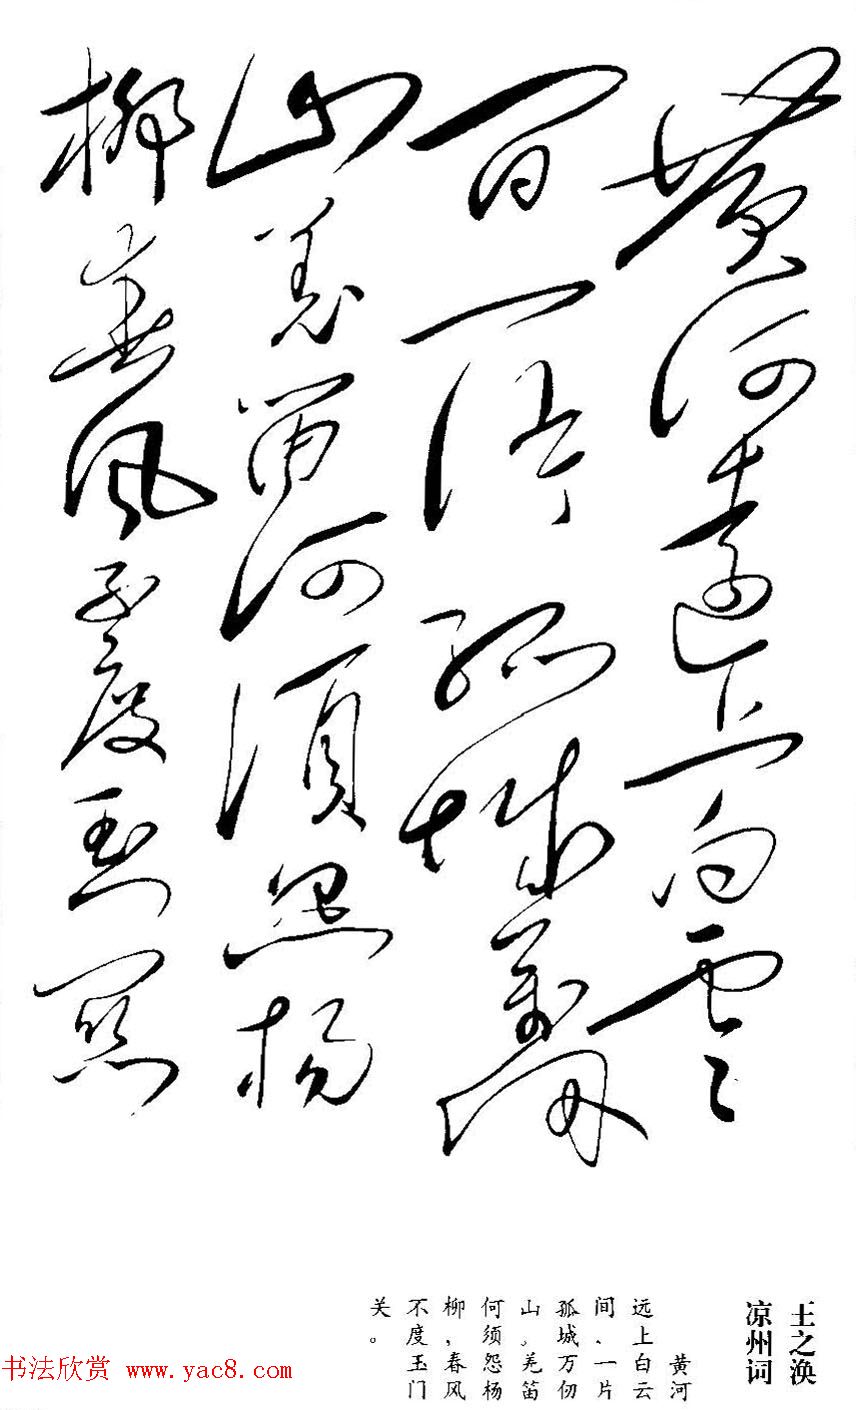 黄河遠上白雲
間一片孤城萬仞
山羌笛何須怨楊
柳春風不度玉關
王之涣
凉州词
黄河
远上白云
间、一片
孤城万仞
山。羌笛
何须怨杨
柳，春风
不度玉门
关。
书法欣赏 www.yac8.com